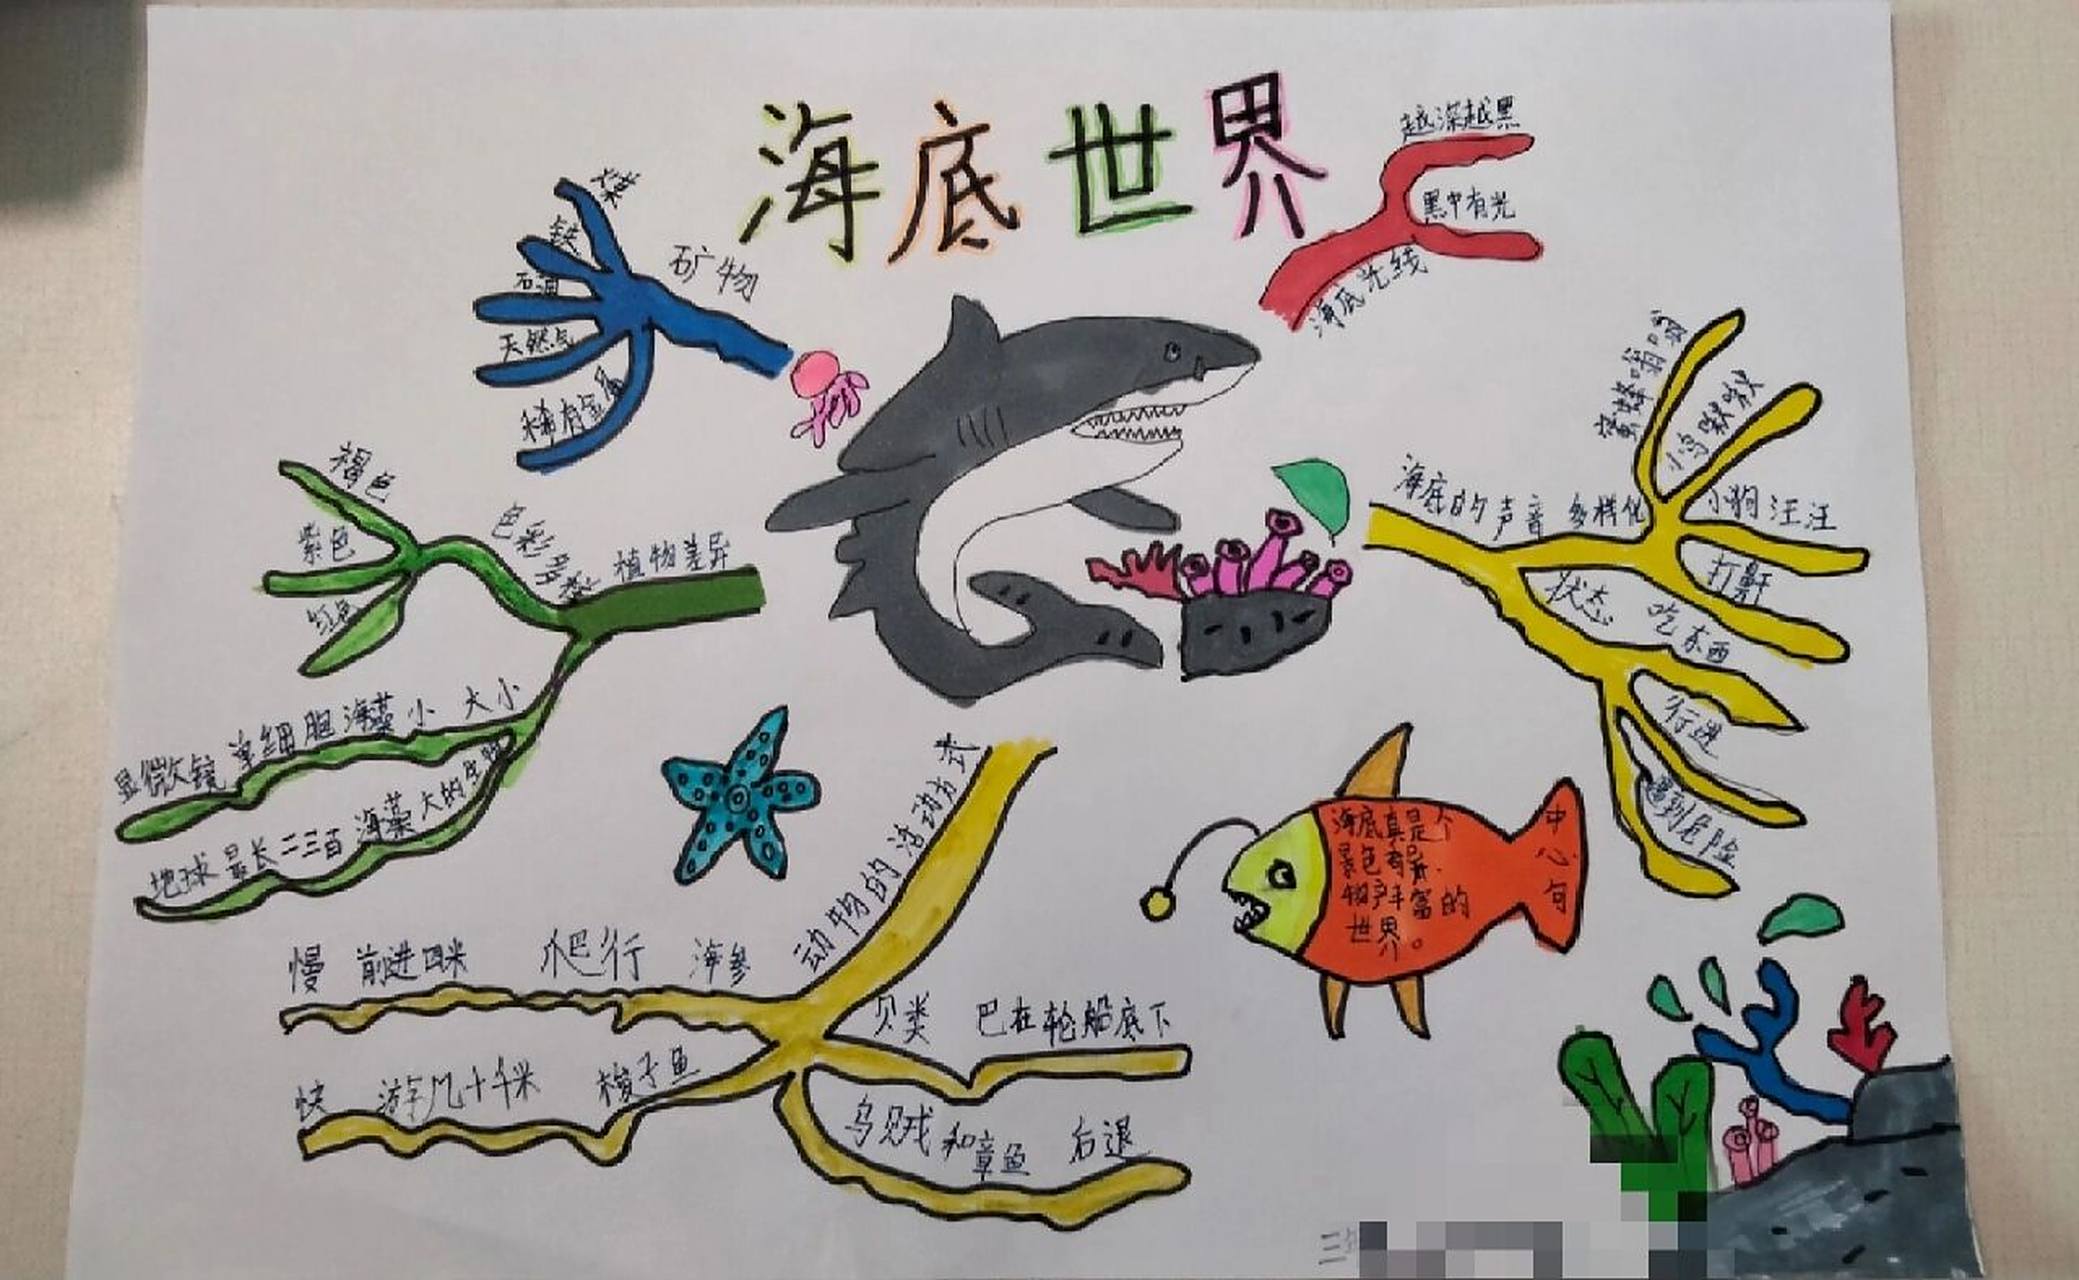 海底世界
越深越黑
黑中有光
海底光线
矿物
煤
铁
石油
天然气
稀有金属
植物差异
色彩多
褐色
紫色
红色
大小
显微镜 单细胞海藻小
地球最长二三百 海藻大的
海底的声音 多样化
蜜蜂嗡嗡
小鸟啾啾
小狗汪汪
打鼾
状态
吃东西
行进
遇到危险
动物的活动方式
慢 前进四米 爬行 海参
快 游几十千米 梭子鱼
贝类 巴在轮船底下
乌贼和章鱼 后退
海底真是个
景色奇异、
物产丰富的
世界。
中心句